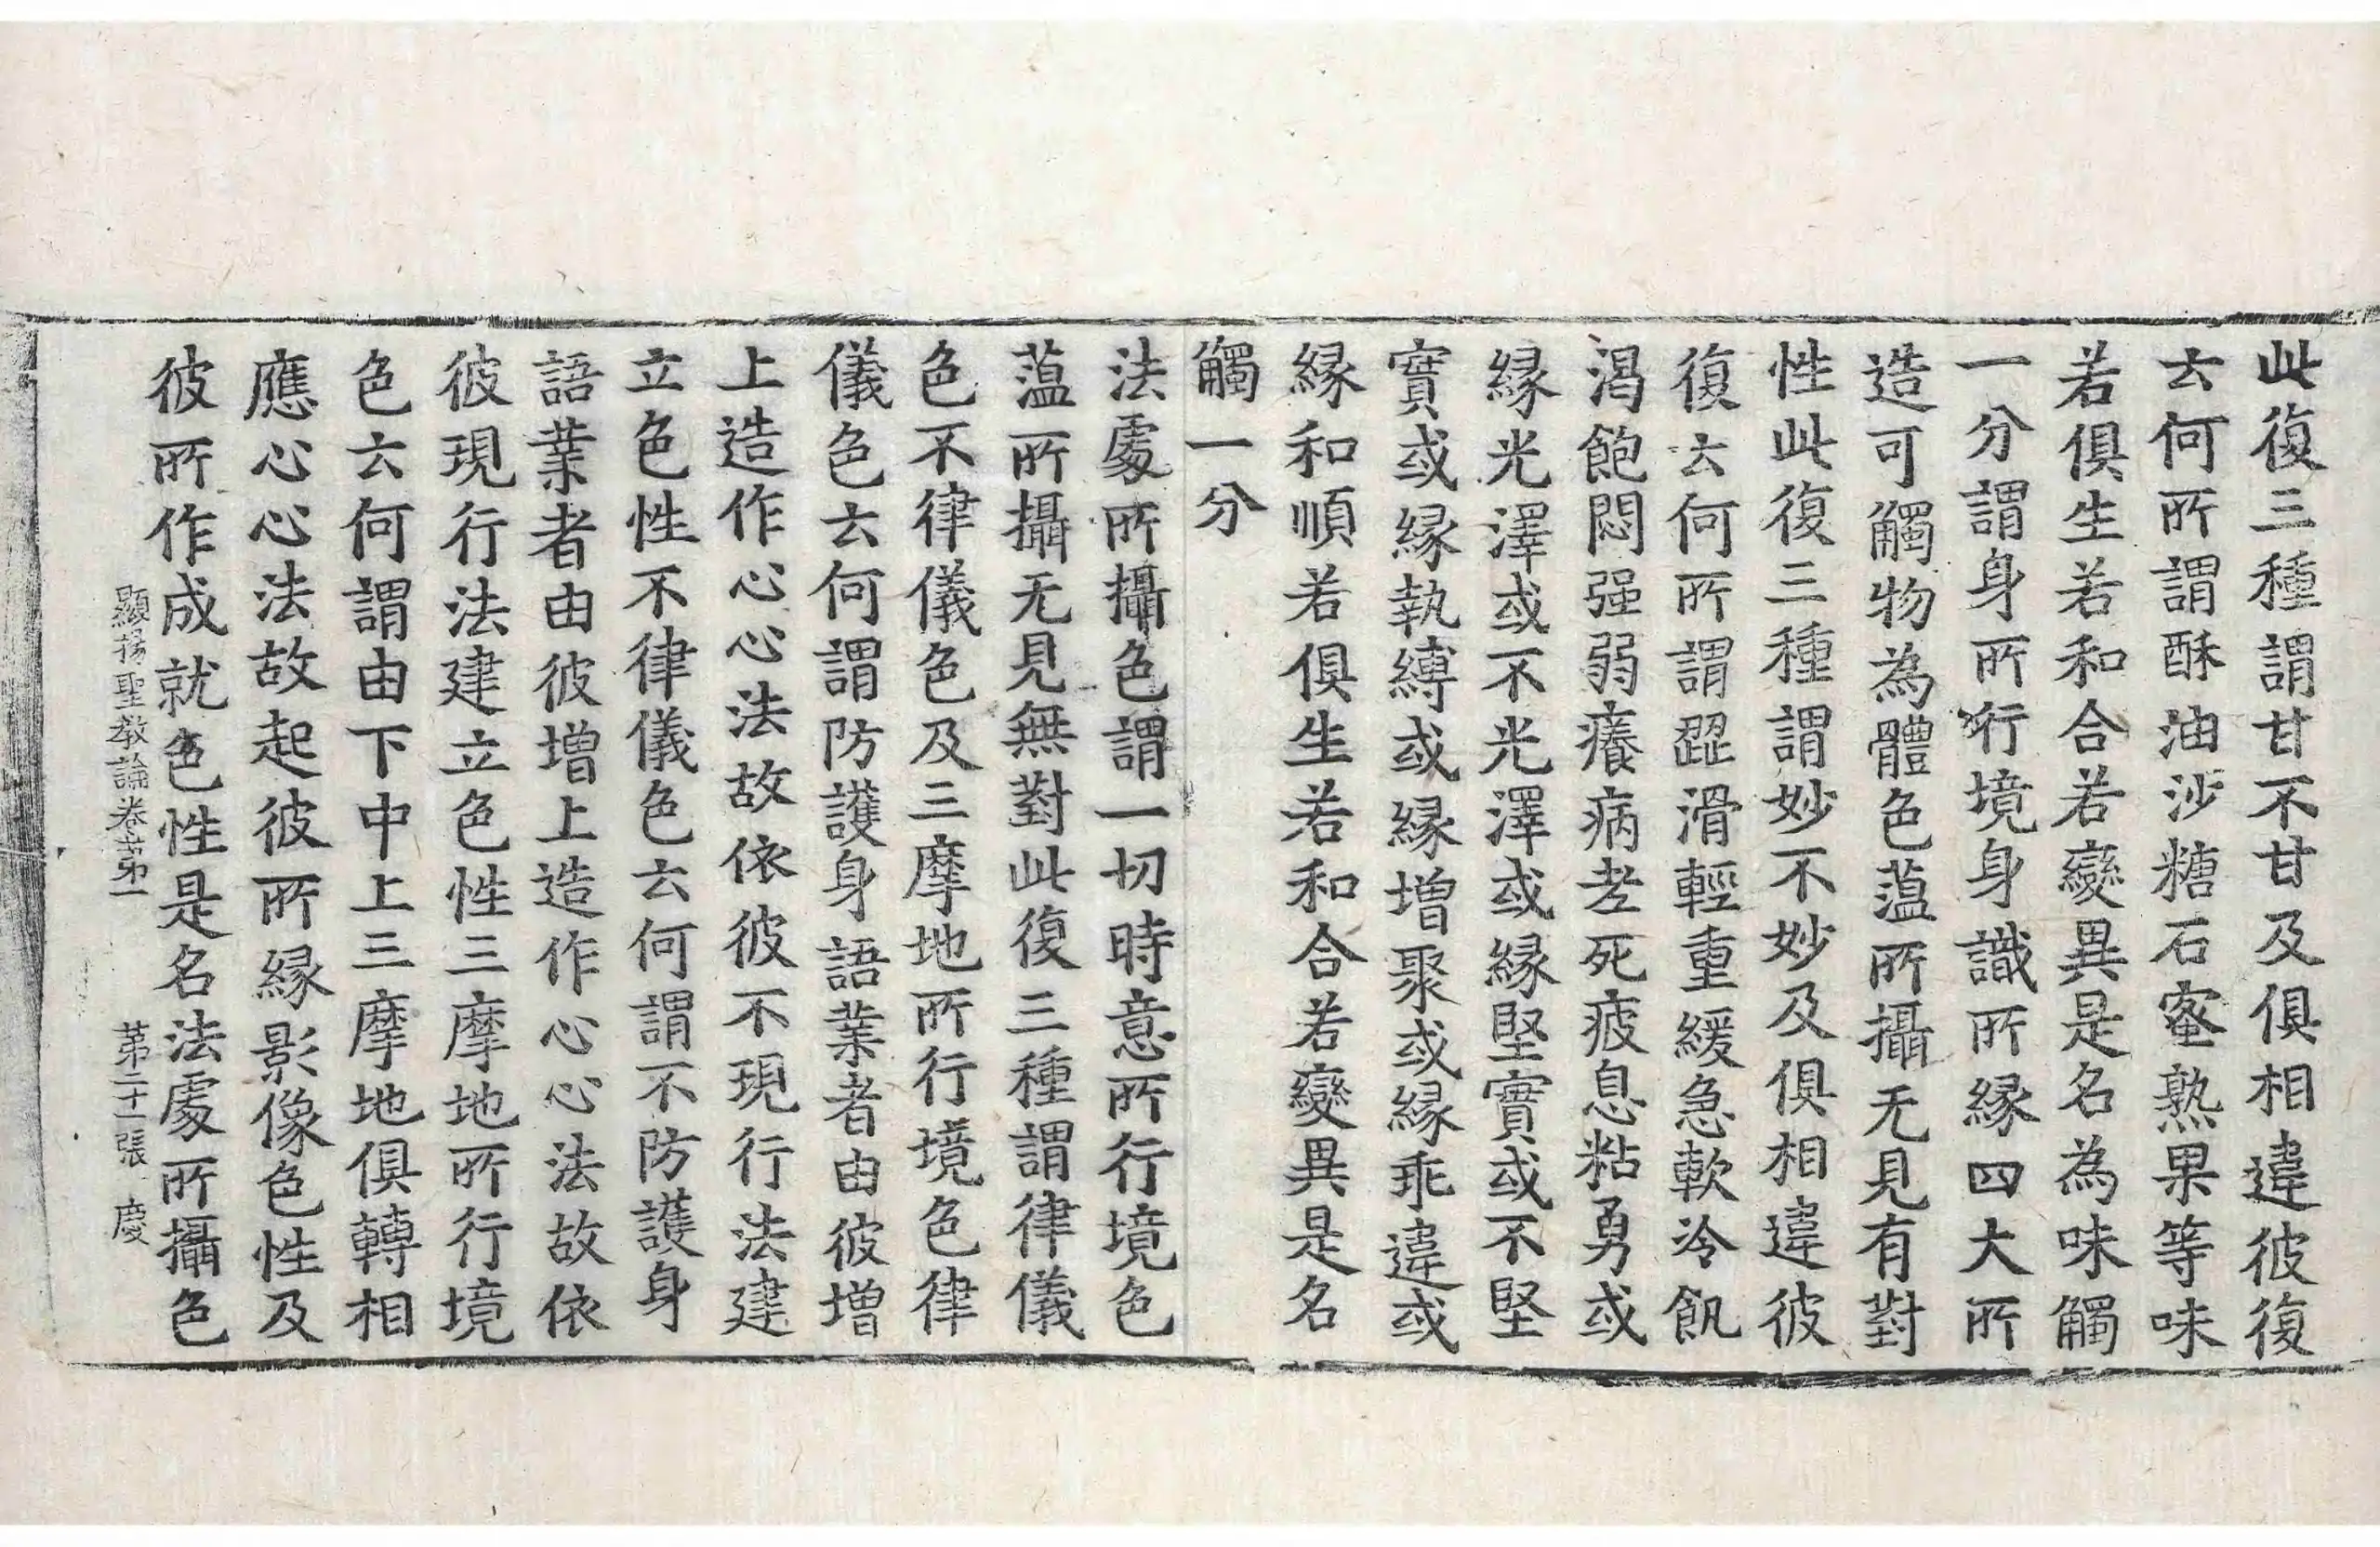 此復三種謂甘不甘及俱相違彼復
云何所謂酥油沙糖石蜜熟果等味
若俱生若和合若變異是名為味觸
一分謂身所行境身識所緣四大所
造可觸物為體色薀所攝无見有對
性此復三種謂妙不妙及俱相違彼
復云何所謂澀滑輕重緩急軟冷飢
渴飽悶强弱癢病老死疲息粘勇或
緣光澤或不光澤或緣堅實或不堅
實或緣執縛或緣增聚或緣乖違或
緣和順若俱生若和合若變異是名
觸一分
法處所攝色謂一切時意所行境色
薀所攝无見無對此復三種謂律儀
色不律儀色及三摩地所行境色律
儀色云何謂防護身語業者由彼增
上造作心心法故依彼不現行法建
立色性不律儀色云何謂不防護身
語業者由彼增上造作心心法故依
彼現行法建立色性三摩地所行境
色云何謂由下中上三摩地俱轉相
應心心法故起彼所緣影像色性及
彼所作成就色性是名法處所攝色
顯揚聖教論卷第一 第二十一張 慶